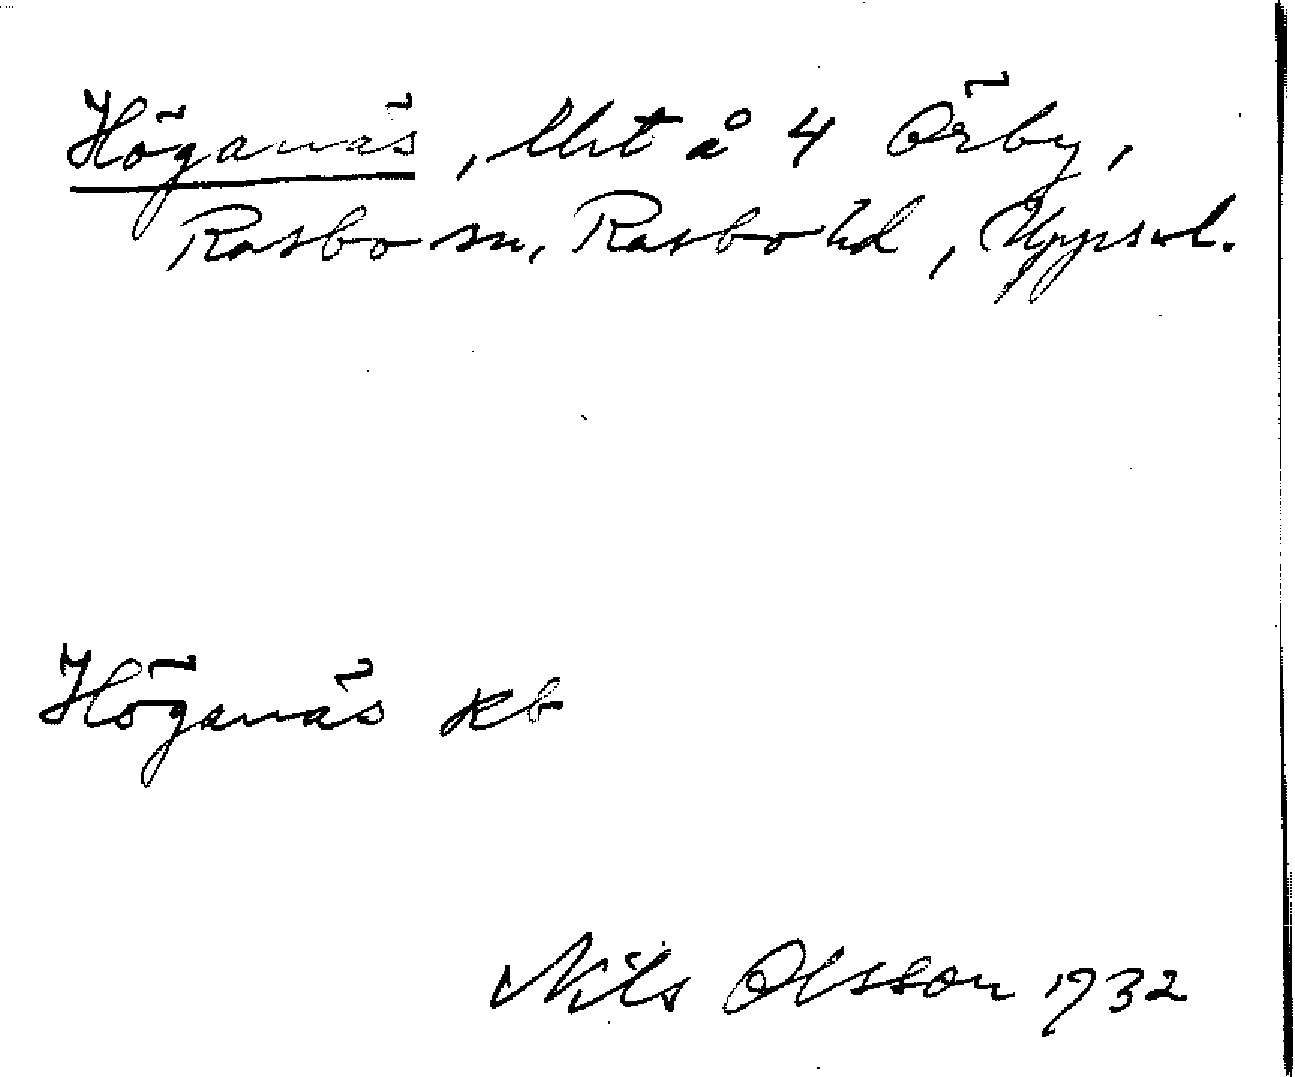 Höganäs, lht å 4 Örby,
Rasbo sn, Rasbo hd, Uppsal.
Höganäs kb
Nils Olsson 1932